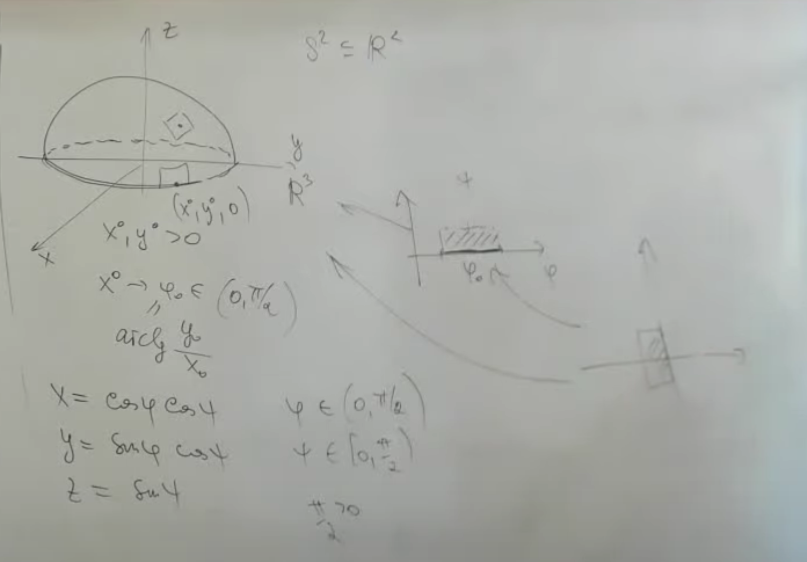 z
S² ⊆ R²
y
R³
(x°, y°, 0)
x°, y° > 0
x
x° → φ₀ ∈ (0, π/2)
"
arctg y₀/x₀
x = cosφ cosψ
φ ∈ (0, π/2)
y = sinφ cosψ
ψ ∈ [0, π/2)
z = sinψ
π/2 > 0
ψ
φ₀
φ